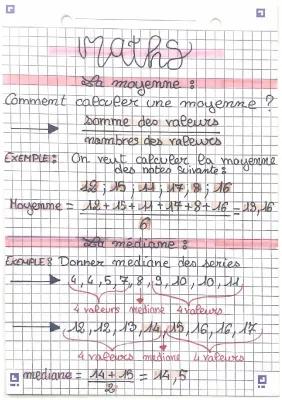 maths
La moyenne :
Comment calculer une moyenne ?
somme des valeurs
nombres des valeurs
EXEMPLE : On veut calculer la moyenne
des notes suivante :
12 ; 15 ; 11 ; 17 ; 8 ; 16
Moyenne = 12 + 15 + 11 + 17 + 8 + 16 = 13,16
6
La médiane :
EXEMPLE : Donner mediane des series
4, 4, 5, 7, 8, 9, 10, 10, 11
4 valeurs mediane 4 valeurs
12, 12, 13, 14, 15, 16, 16, 17
4 valeurs mediane 4 valeurs
mediane = 14 + 15 = 14,5
2